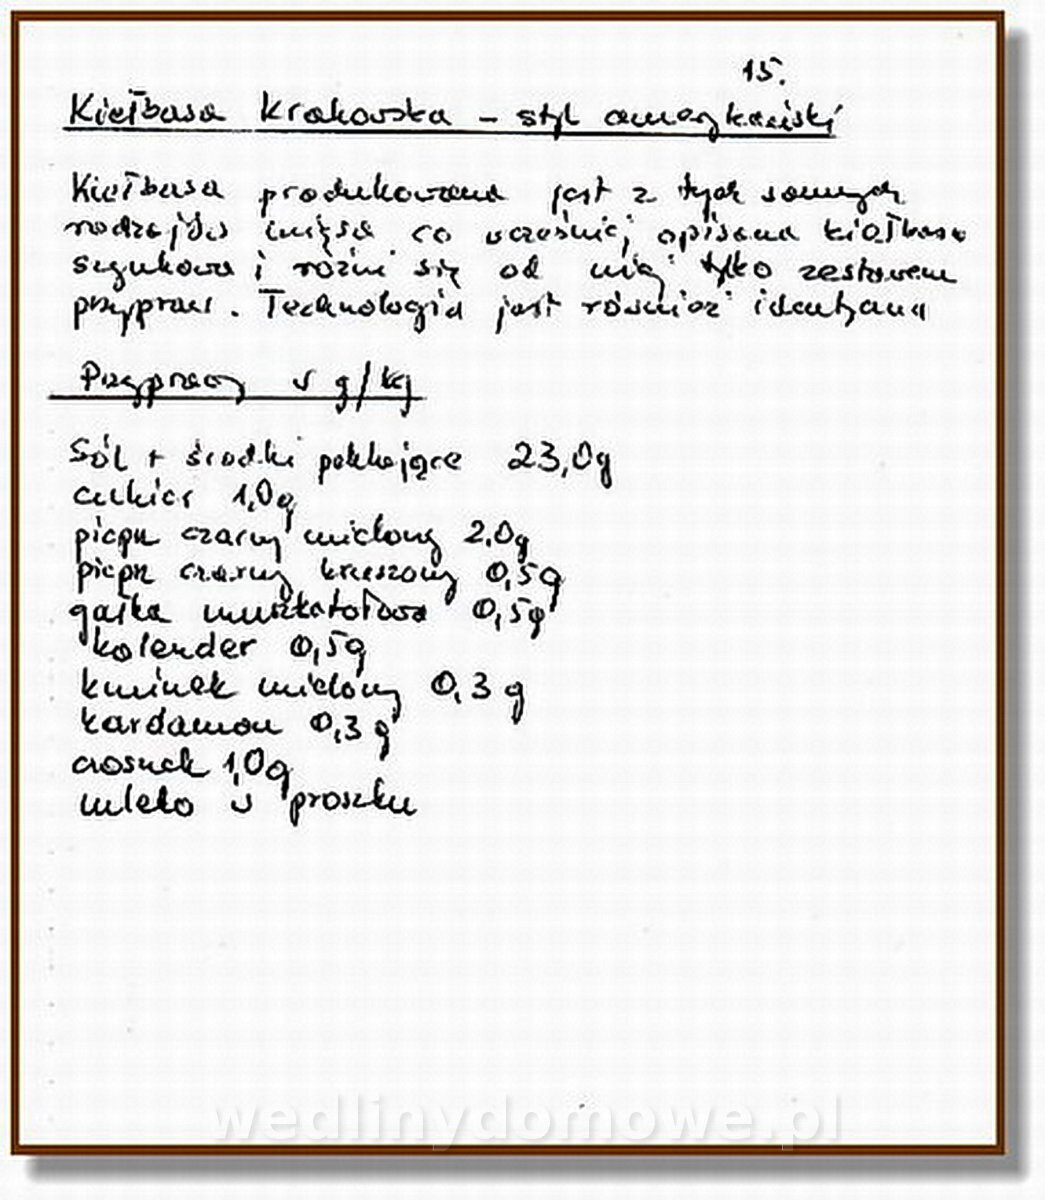 15.
Kiełbasa Krakowska - styl amerykański
Kiełbasa produkowana jest z tych samych
rodzajów mięsa co wcześniej opisana kiełbasa
szynkowa i różni się od niej tylko zestawem
przypraw. Technologia jest również identyczna
Przyprawy w g/kg
Sól + środki peklujące 23,0g
cukier 1,0g
pieprz czarny mielony 2,0g
pieprz czarny kruszony 0,5g
gałka muszkatołowa 0,5g
kolender 0,5g
kminek mielony 0,3g
kardamon 0,3g
czosnek 1,0g
mleko w proszku
wedlinydomowe.pl